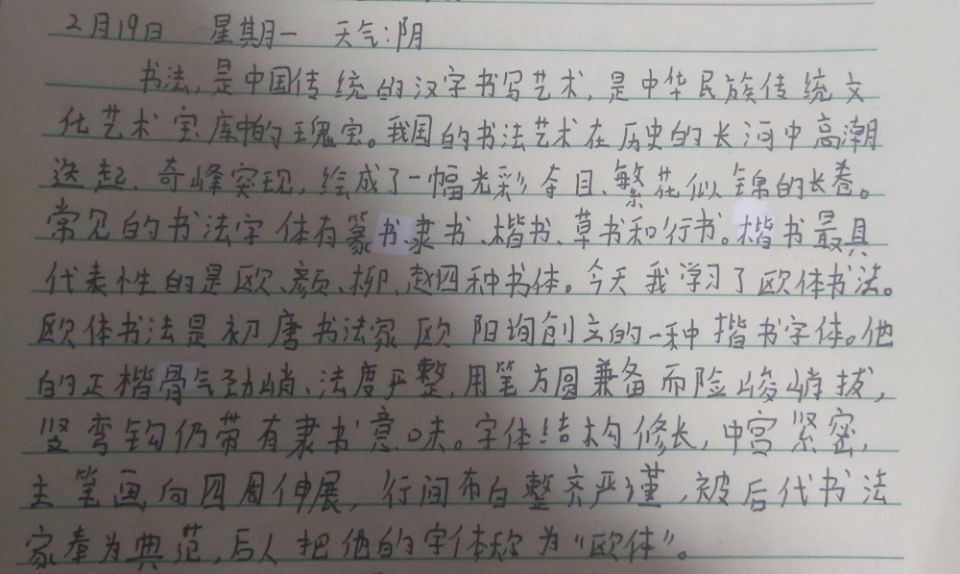 2月19日 星期一 天气:阴
书法,是中国传统的汉字书写艺术,是中华民族传统文
化艺术宝库帕的瑰宝。我国的书法艺术在历史的长河中高潮
迭起、奇峰突现,绘成了一幅光彩夺目、繁花似锦的长卷。
常见的书法字体有篆书、隶书、楷书、草书和行书。楷书最具
代表性的是欧、颜、柳、赵四种书体。今天我学习了欧体书法。
欧体书法是初唐书法家欧阳询创立的一种揩书字体。他
的正楷骨气劲峭、法度严整,用笔方圆兼备而险峻峭拔,
竖弯钩仍带有隶书意味。字体结构修长,中宫紧密,
主笔画向四周伸展,行间布白整齐严谨,被后代书法
家奉为典范,后人把他的字体称为“欧体”。